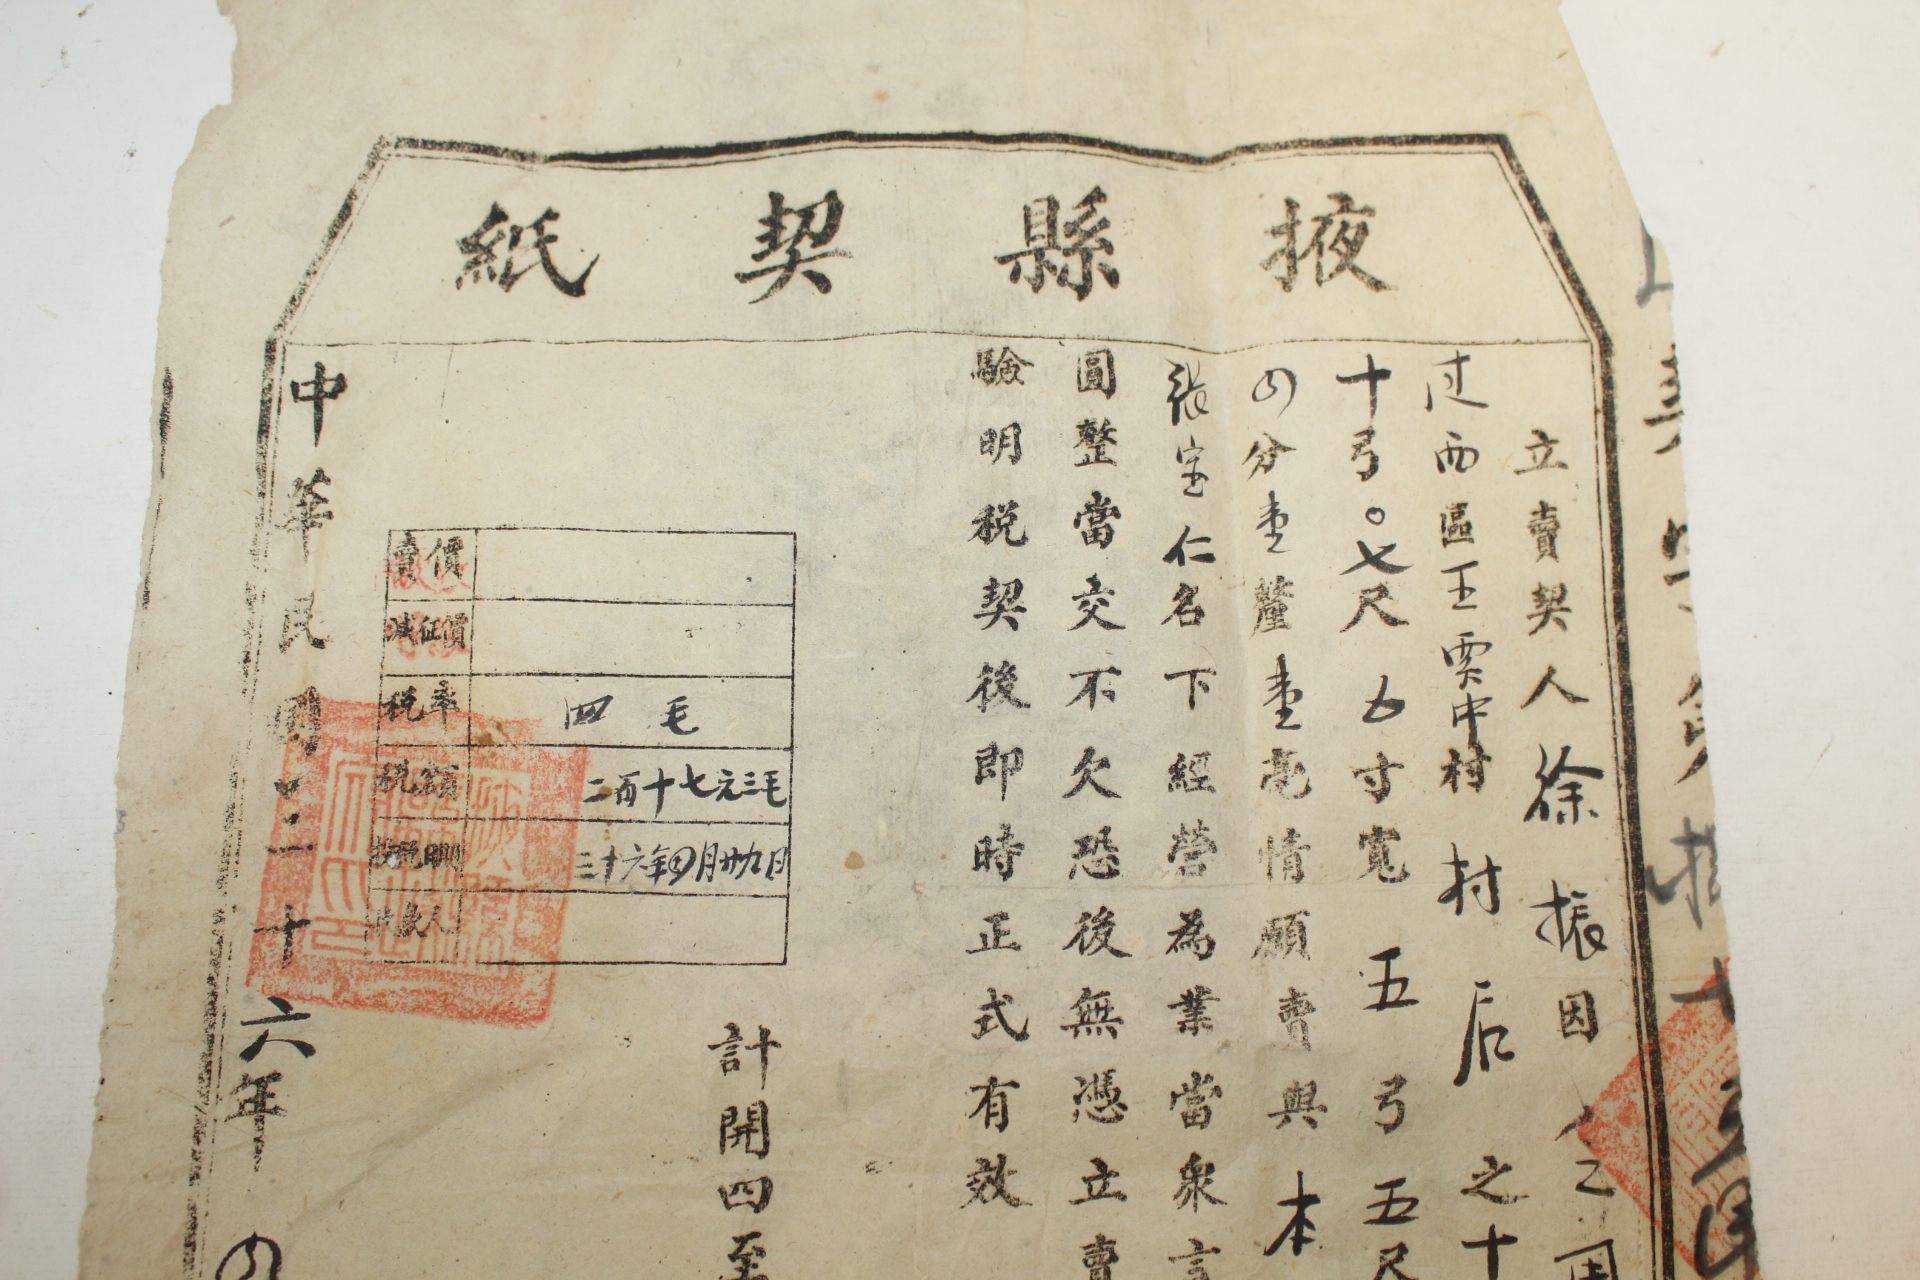 掖縣契紙
立賣契人徐振因
西區王賈中村村后之十
十弓〇七尺五寸寬五弓五尺
四分壹釐壹毫情願賣與本
張宝仁名下經營為業當衆言
圓整當交不欠恐後無憑立賣
驗明税契後即時正式有效
計開四至
賣價
減征價
税率 四毛
税額 二百十七元三毛
税期 三十六年四月廿九日
人
中華民國三十六年四